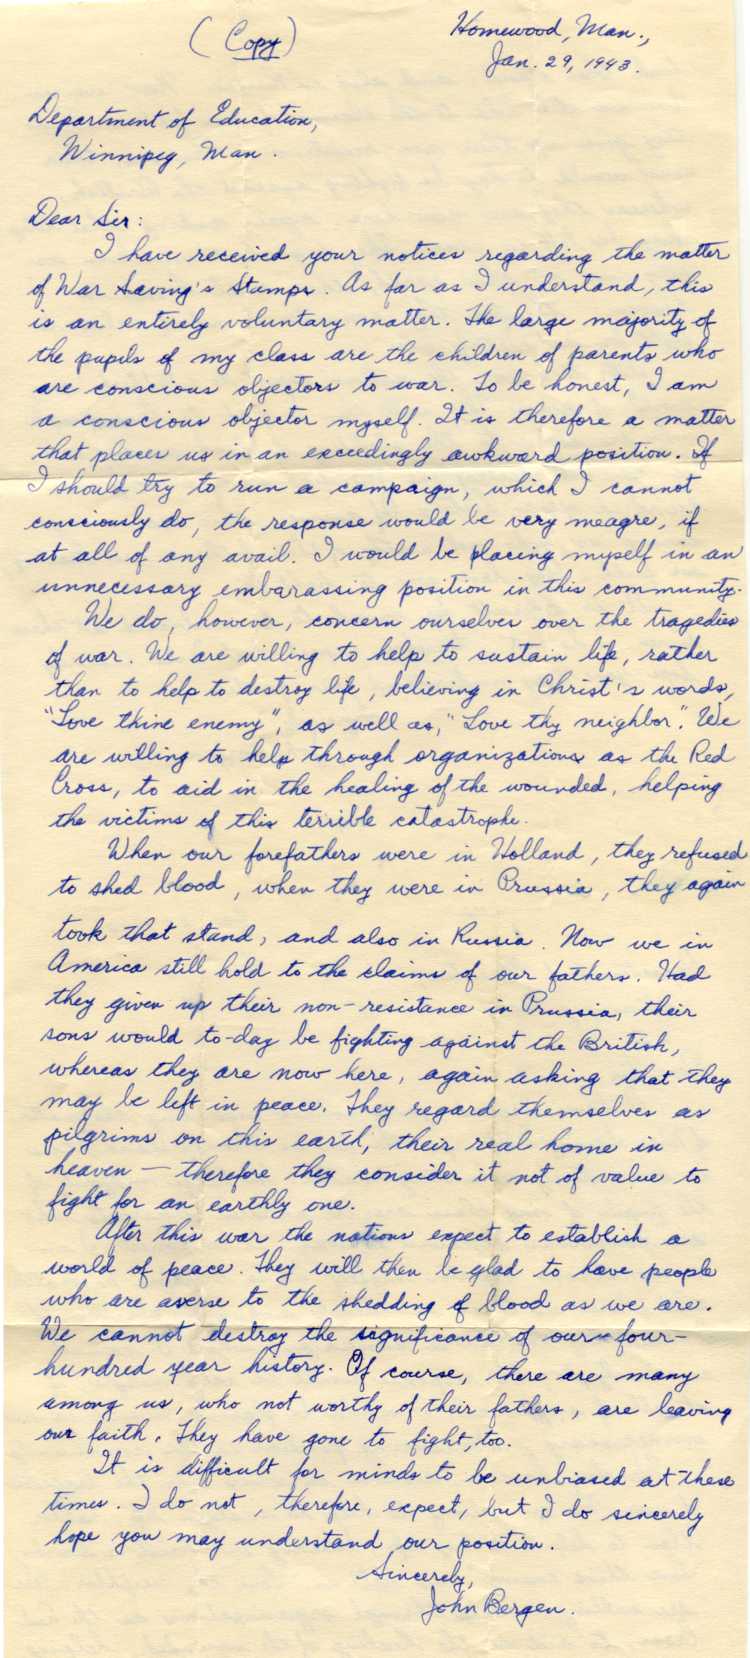 (Copy)
Homewood, Man.,
Jan. 29, 1943.
Department of Education,
Winnipeg, Man.
Dear Sir:
I have received your notices regarding the matter
of War Saving's Stamps. As far as I understand, this
is an entirely voluntary matter. The large majority of
the pupils of my class are the children of parents who
are conscious objectors to war. To be honest, I am
a conscious objector myself. It is therefore a matter
that places us in an exceedingly awkward position. If
I should try to run a campaign, which I cannot
consciously do, the response would be very meagre, if
at all of any avail. I would be placing myself in an
unnecessary embarassing position in this community.
We do, however, concern ourselves over the tragedies
of war. We are willing to help to sustain life, rather
than to help to destroy life, believing in Christ's words,
"Love thine enemy", as well as, "Love thy neighbor". We
are willing to help through organizations as the Red
Cross, to aid in the healing of the wounded, helping
the victims of this terrible catastrophe.
When our forefathers were in Holland, they refused
to shed blood, when they were in Prussia, they again
took that stand, and also in Russia. Now we in
America still hold to the claims of our fathers. Had
they given up their non-resistance in Prussia, their
sons would to-day be fighting against the British,
whereas they are now here, again asking that they
may be left in peace. They regard themselves as
pilgrims on this earth, their real home in
heaven — therefore they consider it not of value to
fight for an earthly one.
After this war the nations expect to establish a
world of peace. They will then be glad to have people
who are averse to the shedding of blood as we are.
We cannot destroy the significance of our four-
hundred year history. Of course, there are many
among us, who not worthy of their fathers, are leaving
our faith. They have gone to fight, too.
It is difficult for minds to be unbiased at these
times. I do not, therefore, expect, but I do sincerely
hope you may understand our position.
Sincerely,
John Bergen.